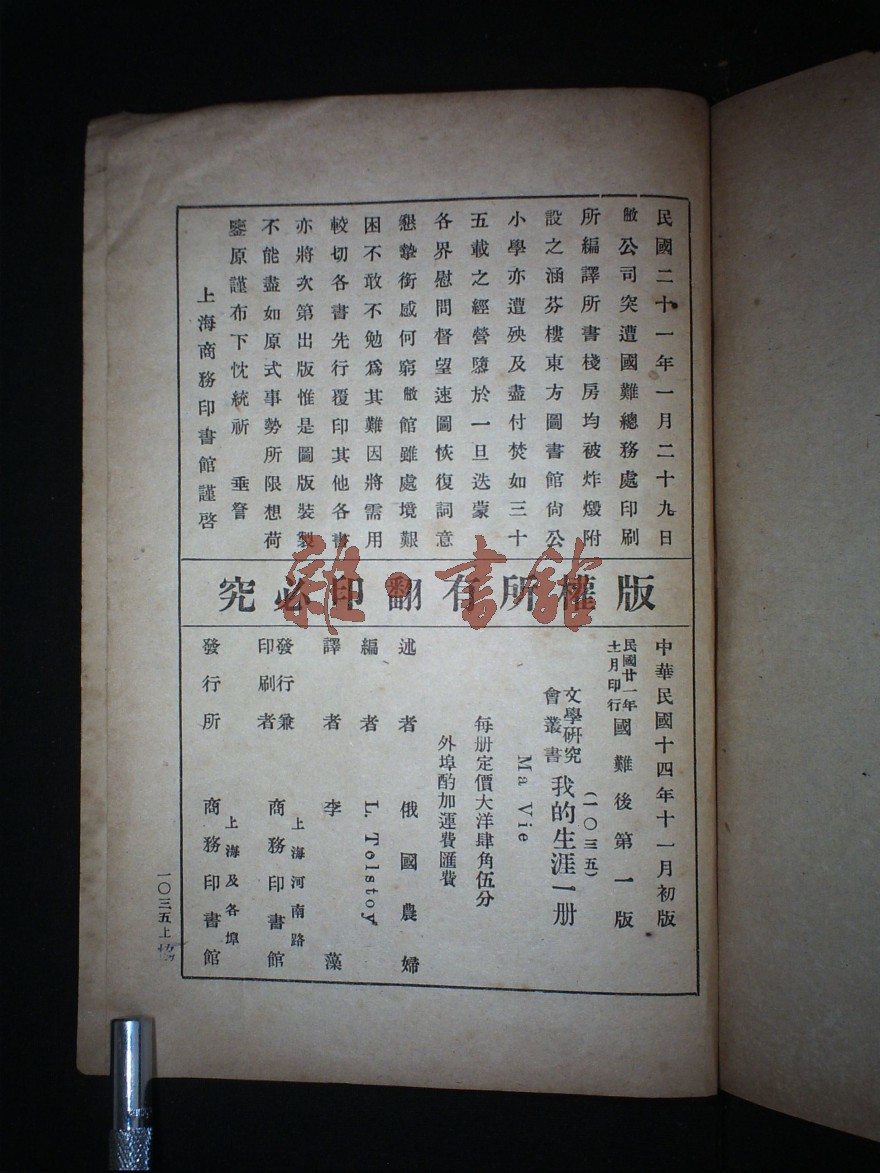 民國二十一年一月二十九日
敝公司突遭國難總務處印刷
所編譯所書棧房均被炸燬附
設之涵芬樓東方圖書館尙公
小學亦遭殃及盡付焚如三十
五載之經營隳於一旦迭蒙
各界慰問督望速圖恢復詞意
懇摯銜感何窮敝館雖處境艱
困不敢不勉爲其難因將需用
較切各書先行覆印其他各書
亦將次第出版惟是圖版裝製
不能盡如原式事勢所限想荷
鑒原謹布下忱統祈 垂詧
上海商務印書館謹啓
版權所有翻印必究
雜·書館
中華民國十四年十一月初版
民國廿一年
十一月印行
國難後第一版
(一〇三五)
文學研究
會叢書
我的生涯一册
Ma Vie
每册定價大洋肆角伍分
外埠酌加運費匯費
述者 俄國農婦
編者 L. Tolstoy
譯者 李藻
發行兼
印刷者
上海河南路
商務印書館
發行所
上海及各埠
商務印書館
一〇三五上